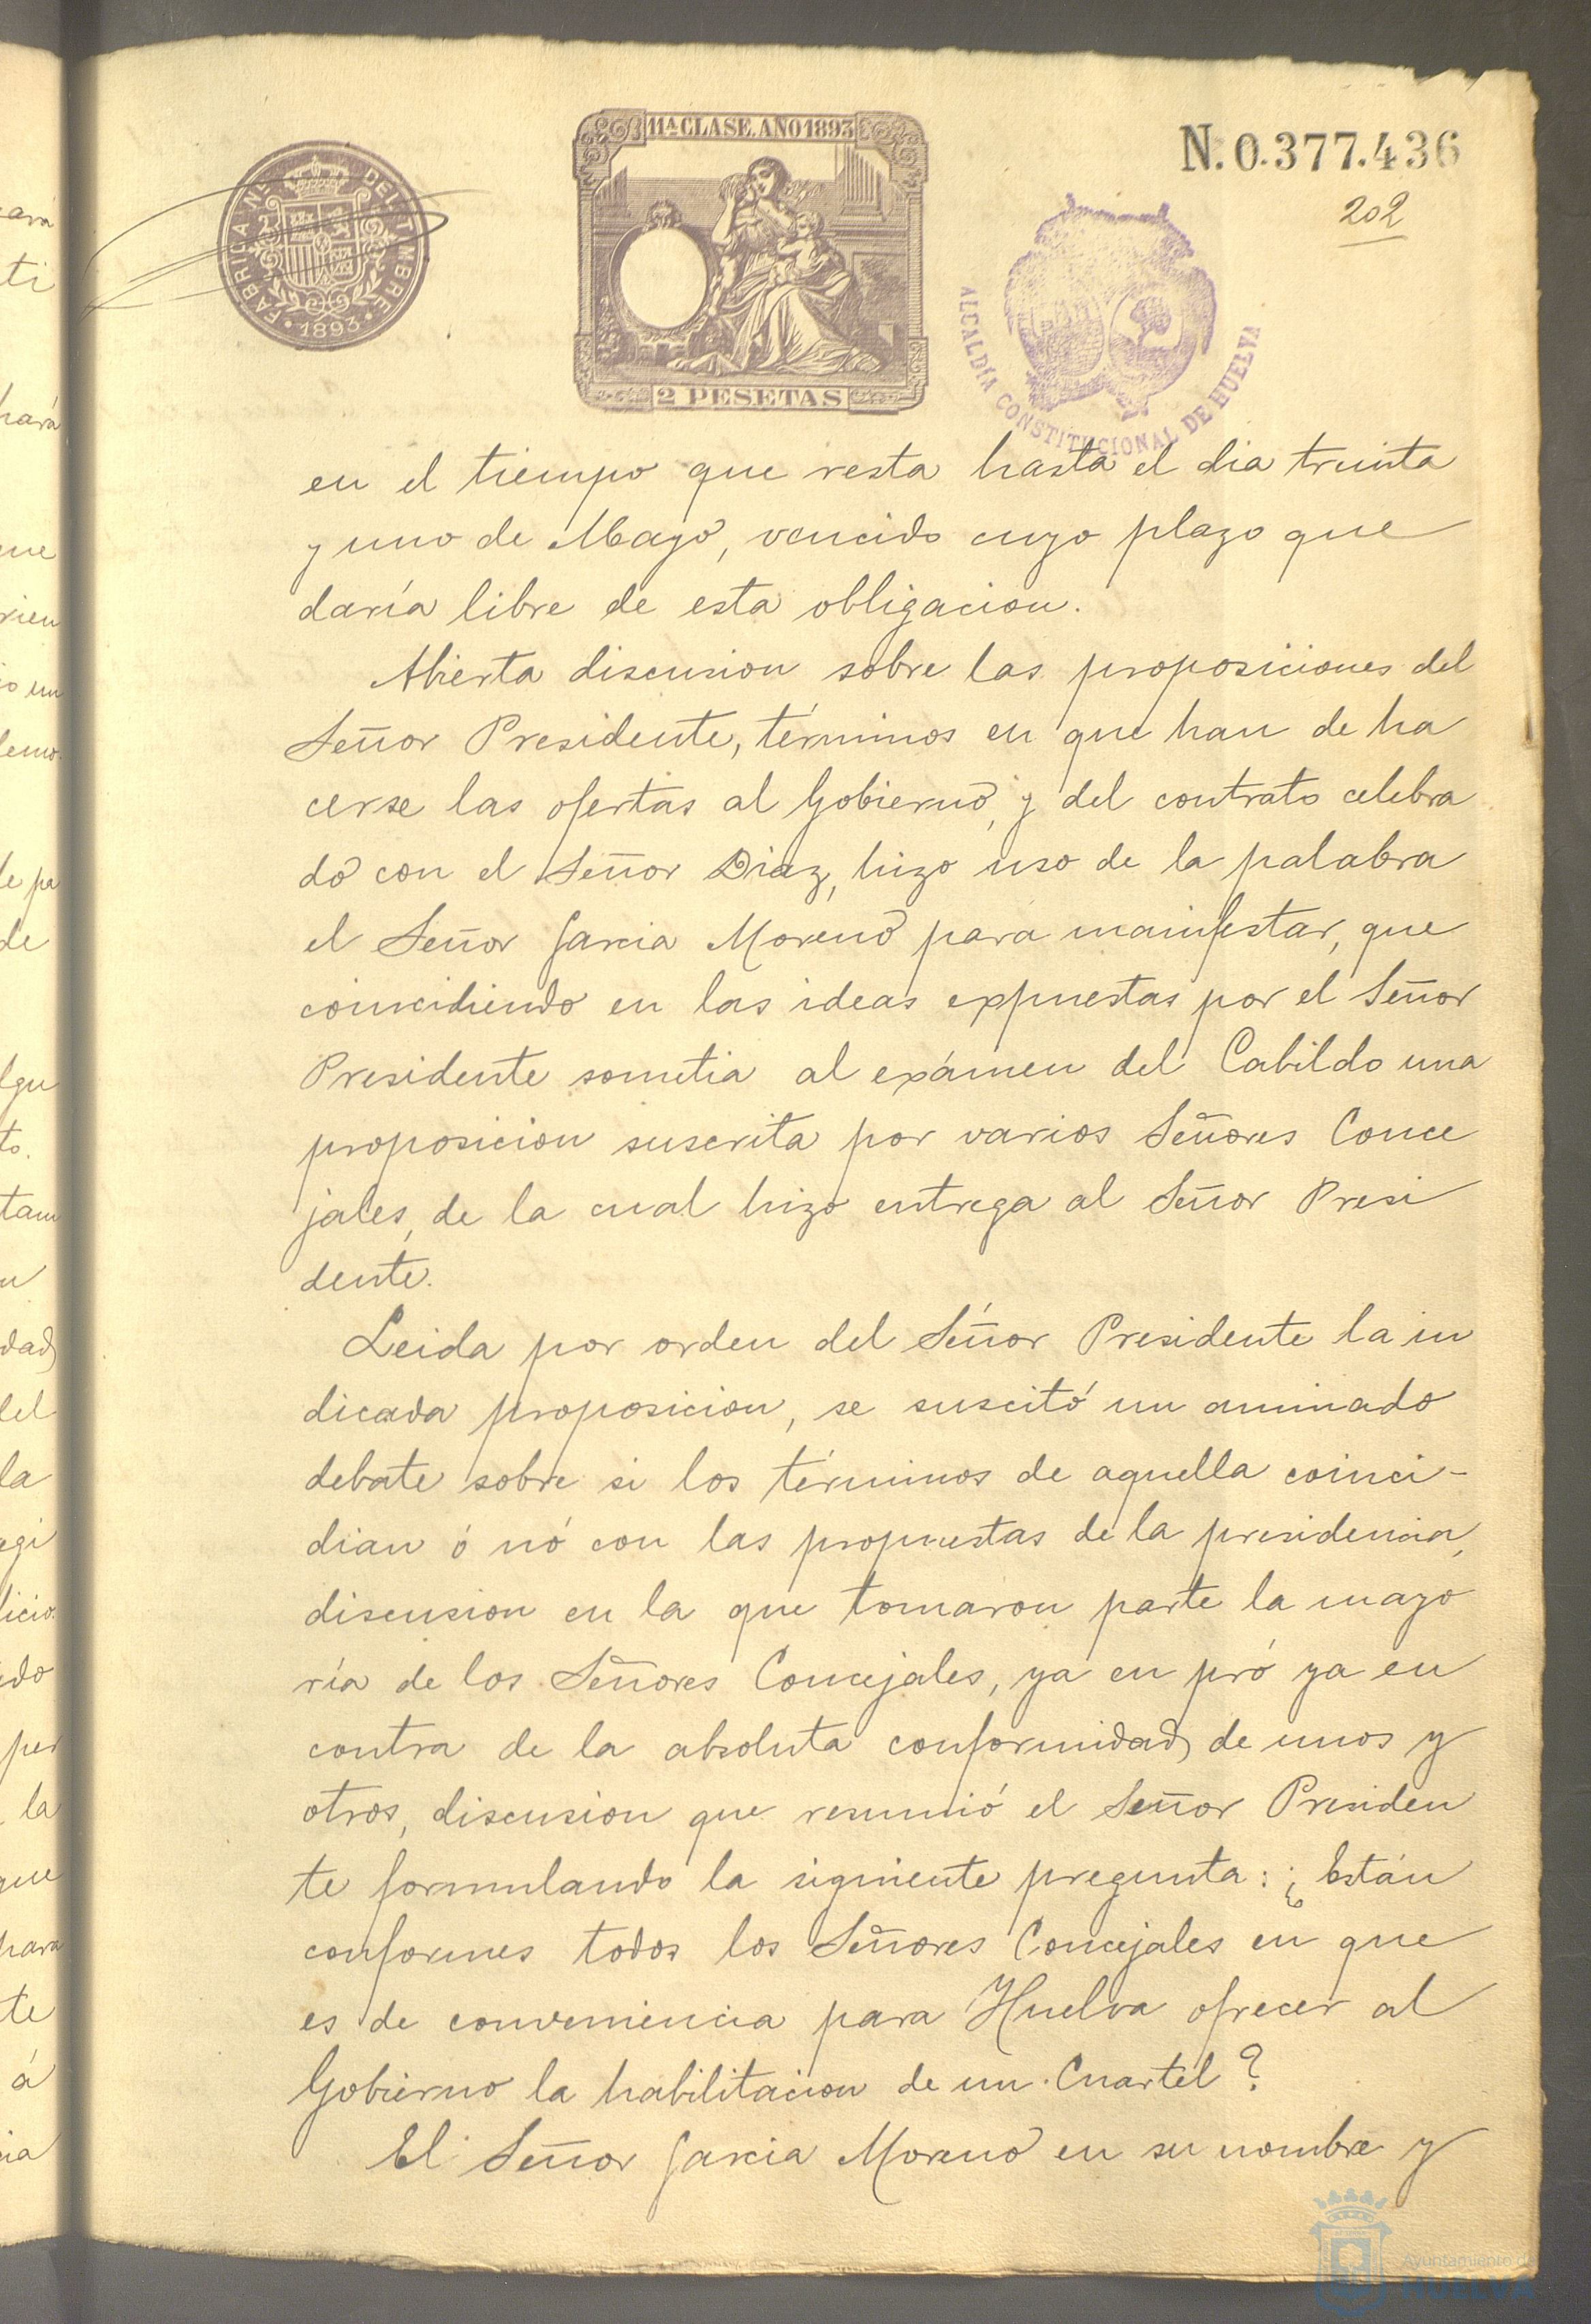 11ª CLASE. AÑO 1893
N. 0.377.436
202
FABRICA NL DEL TIMBRE
· 1893 ·
2 PESETAS
ALCALDÍA CONSTITUCIONAL DE HUELVA
en el tiempo que resta hasta el dia treinta
y uno de Mayo, vencido cuyo plazo que
daría libre de esta obligacion.
Abierta discusion sobre las proposiciones del
Señor Presidente, términos en que han de ha
cerse las ofertas al Gobierno, y del contrato celebra
do con el Señor Diaz, hizo uso de la palabra
el Señor Garcia Moreno para manifestar, que
coincidiendo en las ideas expuestas por el Señor
Presidente sometia al exámen del Cabildo una
proposicion suscrita por varios Señores Conce
jales, de la cual hizo entrega al Señor Presi
dente.
Leida por orden del Señor Presidente la in
dicada proposicion, se suscitó un animado
debate sobre si los términos de aquella coinci-
dian ó nó con las propuestas de la presidencia,
discusion en la que tomaron parte la mayo
ría de los Señores Concejales, ya en pró ya en
contra de la absoluta conformidad de unos y
otros, discusion que resumió el Señor Presiden
te formulando la siguiente pregunta: ¿Están
conformes todos los Señores Concejales en que
es de conveniencia para Huelva ofrecer al
Gobierno la habilitacion de un Cuartel?
El Señor Garcia Moreno en su nombre y
Ayuntamiento de
HUELVA